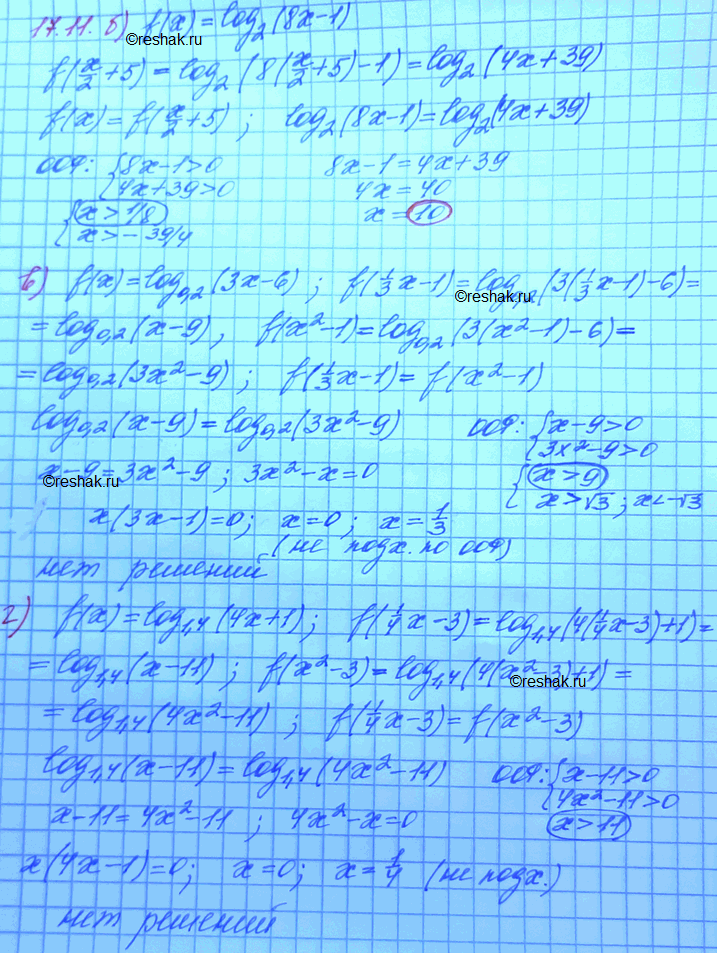 17.11. б) f(x) = log₂(8x-1)
©reshak.ru
f(x/2+5) = log₂(8(x/2+5)-1) = log₂(4x+39)
f(x) = f(x/2+5) ; log₂(8x-1) = log₂(4x+39)
ООФ: { 8x-1>0 8x-1=4x+39
4x+39>0 4x = 40
{ x>1/8 x = 10
x>-39/4
в) f(x) = log₀,₂(3x-6) ; f(1/3x-1) = log₀,₂(3(1/3x-1)-6) =
©reshak.ru
= log₀,₂(x-9), f(x²-1) = log₀,₂(3(x²-1)-6) =
= log₀,₂(3x²-9) ; f(1/3x-1) = f(x²-1)
log₀,₂(x-9) = log₀,₂(3x²-9) ООФ: { x-9>0
3x²-9>0
x-9=3x²-9 ; 3x²-x=0 { x>9
©reshak.ru
x>√3 ; x<-√3
x(3x-1)=0; x=0; x=1/3
(не подх. по ООФ)
нет решений
г) f(x) = log₁,₄(4x+1) ; f(1/4x-3) = log₁,₄(4(1/4x-3)+1) =
= log₁,₄(x-11) ; f(x²-3) = log₁,₄(4(x²-3)+1) =
©reshak.ru
= log₁,₄(4x²-11) ; f(1/4x-3) = f(x²-3)
log₁,₄(x-11) = log₁,₄(4x²-11) ООФ: { x-11>0
4x²-11>0
x-11=4x²-11 ; 4x²-x=0 x>11
x(4x-1)=0; x=0; x=1/4 (не подх.)
нет решений